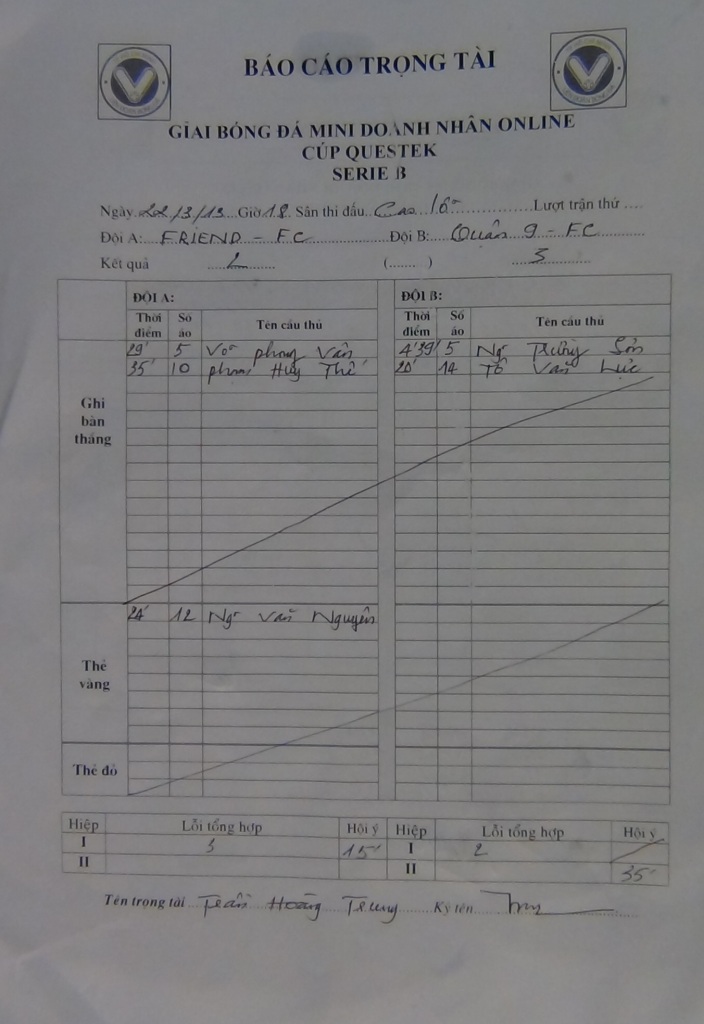 BÁO CÁO TRỌNG TÀI
GIẢI BÓNG ĐÁ MINI DOANH NHÂN ONLINE
CÚP QUESTEK
SERIE B
Ngày 22/3/13 Giờ 18 Sân thi đấu Cao Lượt trận thứ ....
Đội A: FRIEND - FC Đội B: Quân 9 - FC
Kết quả 2 (....... ) 3
ĐỘI A: ĐỘI B:
Thời điểm Số áo Tên cầu thủ Thời điểm Số áo Tên cầu thủ
Ghi bàn thắng
29' 5 Võ phong Vân 4'39' 5 Ng Trường Sơn
35' 10 phạm Huy Thế 20' 14 Tô Văn Lực
Thẻ vàng
24' 12 Ngô Văn Nguyên
Thẻ đỏ
Hiệp Lỗi tổng hợp Hội ý Hiệp Lỗi tổng hợp Hội ý
I 3 15' I 2
II II 35'
Tên trọng tài Trần Hoàng Trung Ký tên